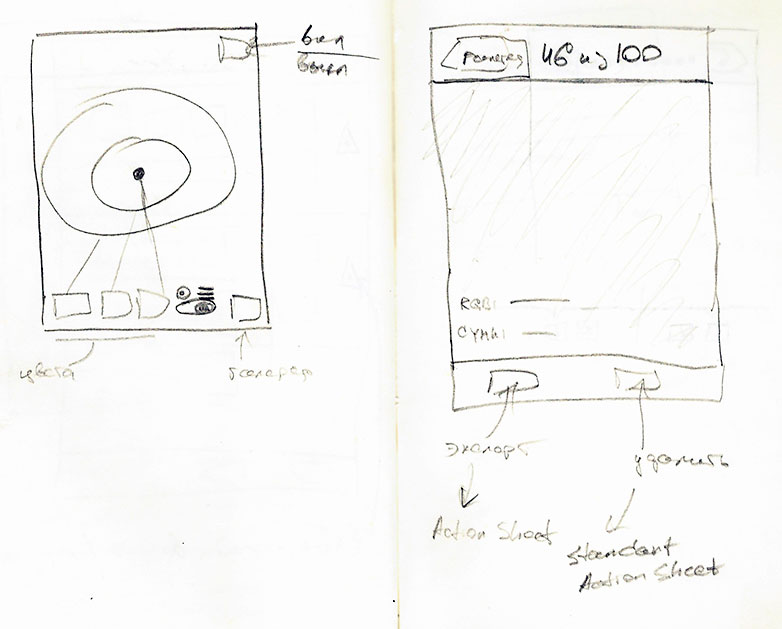 вкл
выкл
цвета
галерея
галерея
46 из 100
RGB:
CYMK:
экспорт
удалить
Action Sheet
Standart
Action Sheet